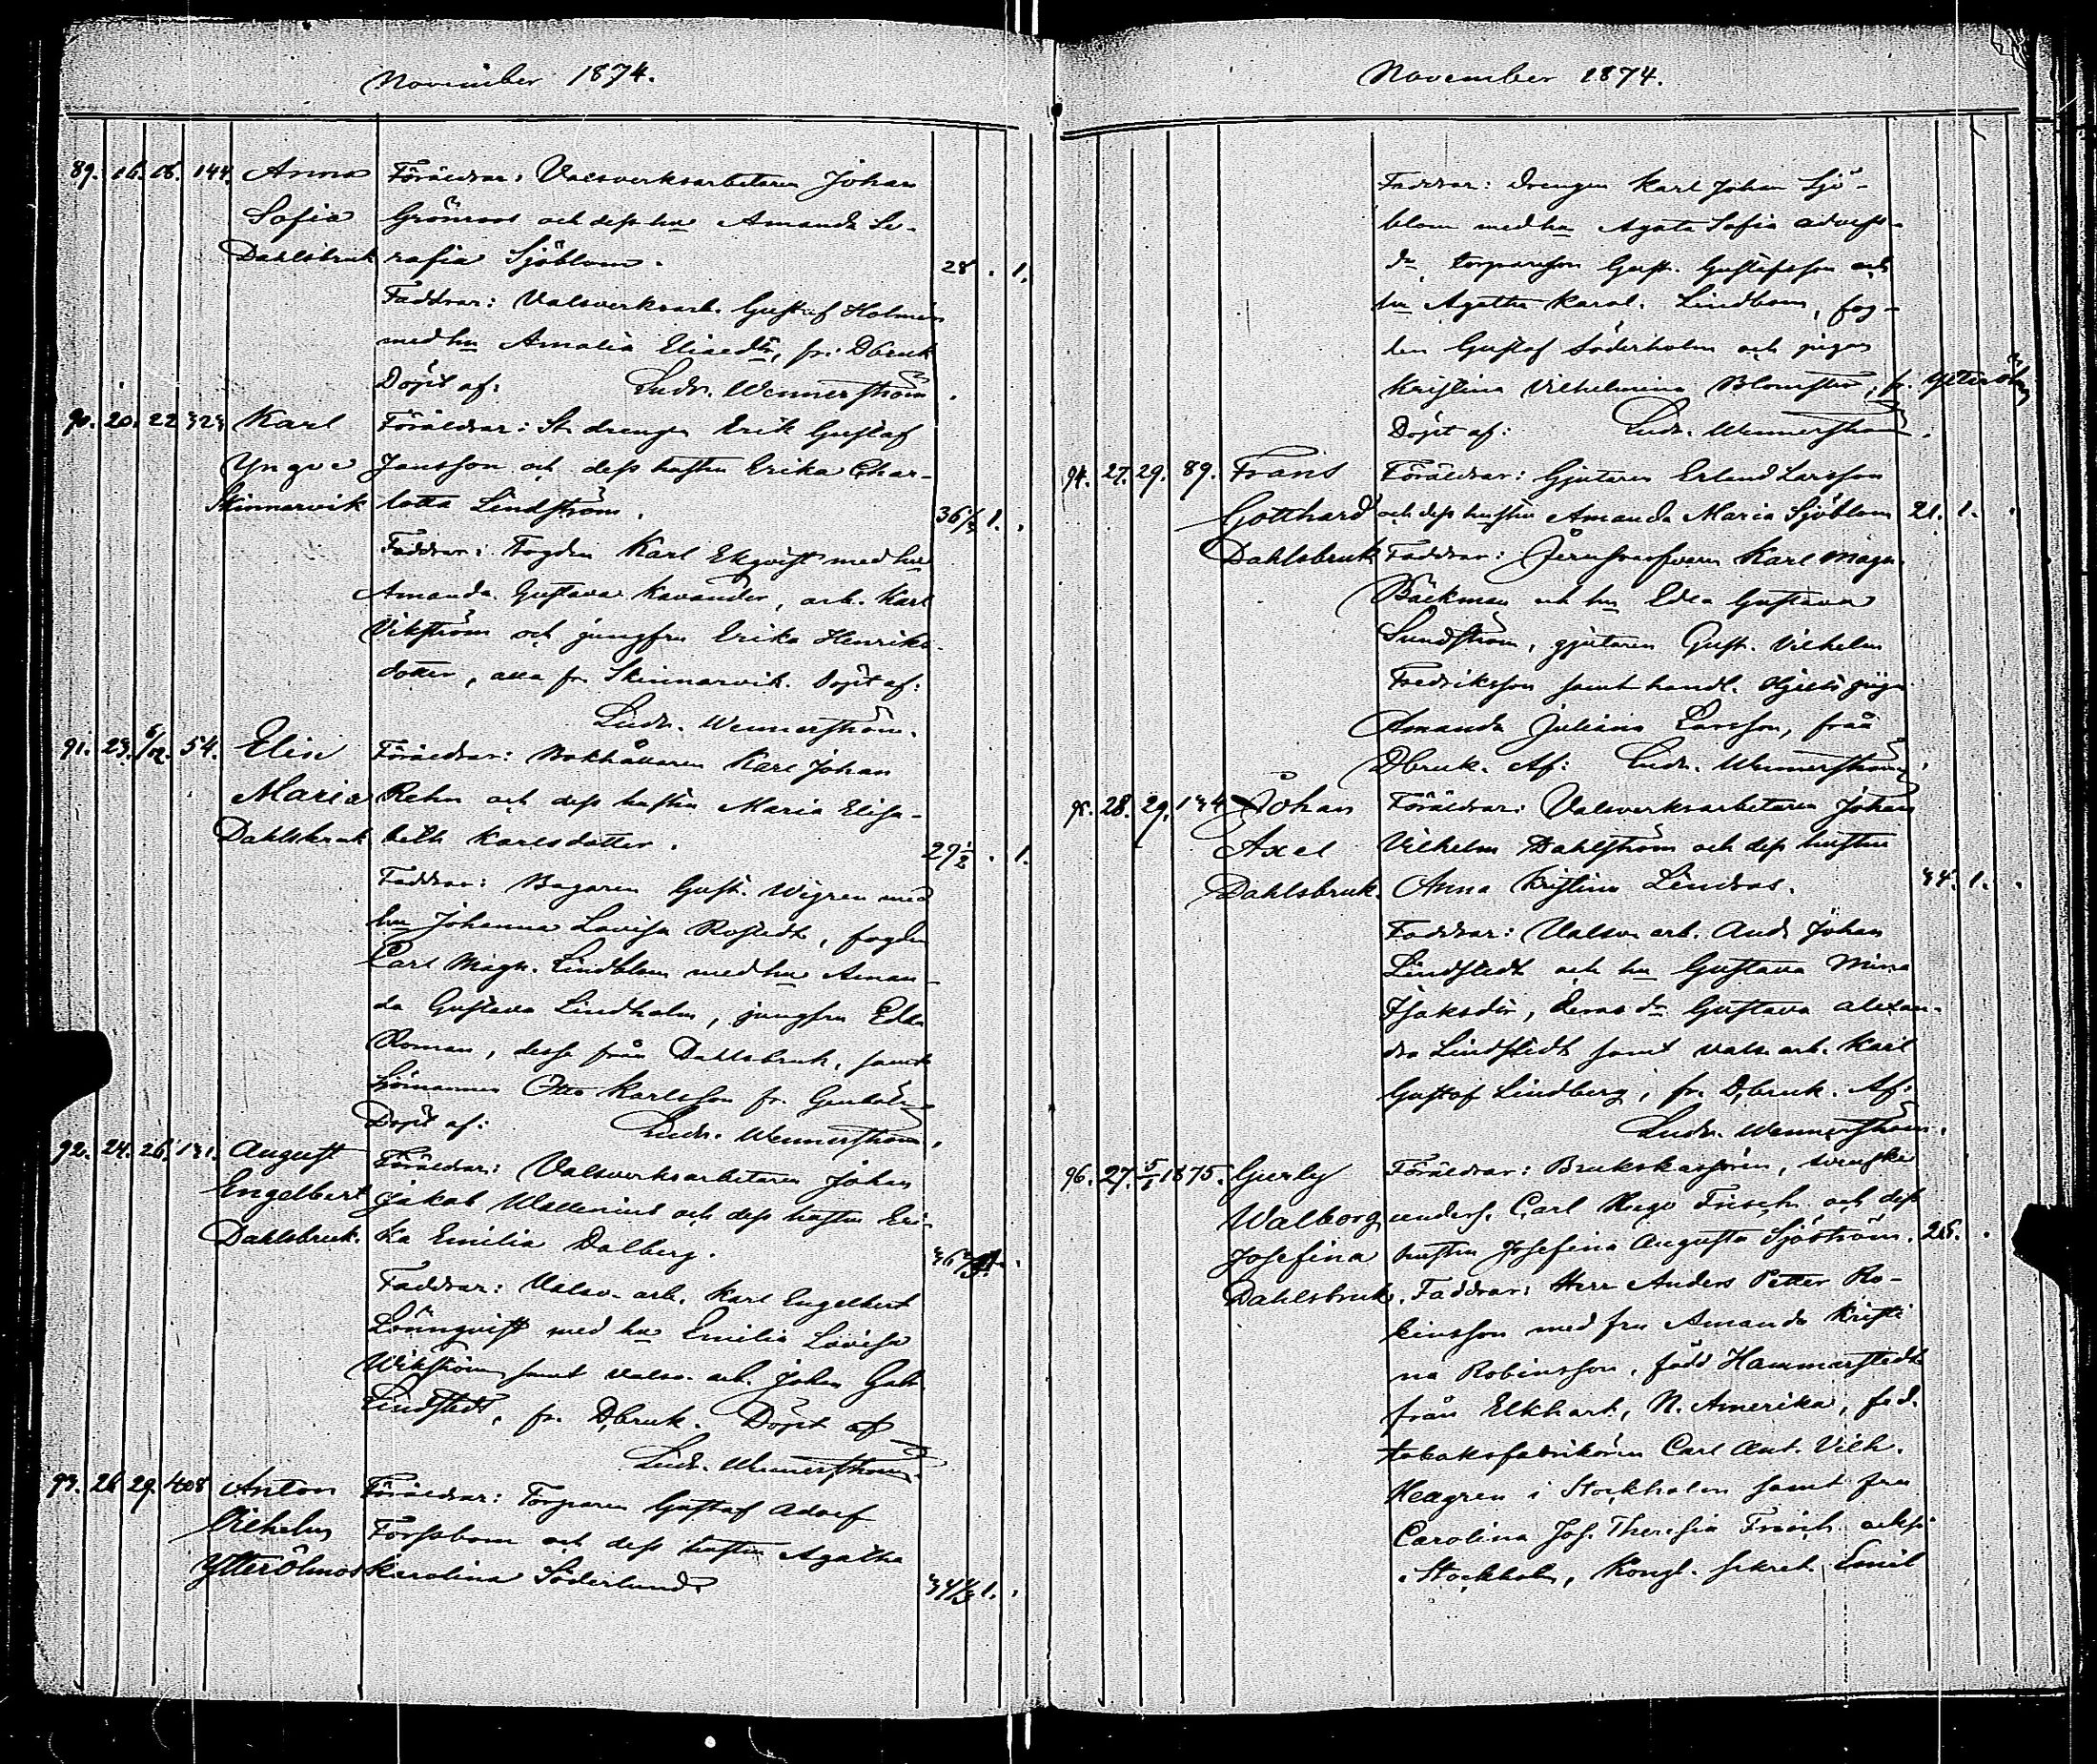 November 1874.
89. 16. 18. 144. Anna Föräldrar: Valsverksarbetaren Johan
Sofia Grönroos och dess hu Amanda Se-
Dahlsbruk rafia Sjöblom. 28. 1.
Faddrar: Valsverksarb. Gustaf Holmén
med hu Amalia Elisedtr, fr. Dbruk
Döpt af: Ludv. Wennerström.
90. 20. 22 323 Karl Föräldrar: St. drengen Erik Gustaf
Yngve Jansson och dess hustru Erika Char-
Skinnarvik lotta Lindström. 36 1/2 1.
Faddrar: Fogden Karl Ekqvist med hu
Amanda Gustava Kavander, arb. Karl
Vikström och jungfru Erika Henriks-
dotter, alla fr. Skinnarvik. Döpt af:
Ludv. Wennerström.
91. 23. 6/12. 54. Elin Föräldrar: Bokhållaren Karl Johan
Maria Rehn och dess hustru Maria Elisa-
Dahlsbruk beth Karlsdotter. 29 1/2. 1.
Faddrar: Bagaren Gust. Wigren med
hu Johanna Lovisa Rostedt, fogden
Carl Magn. Lindblom med hu Aman-
da Gustava Lindholm, jungfru Edla
Roman, desse från Dahlsbruk, samt
sjömannen Otto Karlsson fr.
Döpt af: Ludv. Wennerström.
92. 24. 26. 131. August Föräldrar: Valsverksarbetaren Johan
Engelbert Jakob Wallenius och dess hustru Eri-
Dahlsbruk. ka Emilia Dalberg. 36
Faddrar: Valsv. arb. Karl Engelbert
Lönnqvist med hu Emilia Lovisa
Wikström samt valsv. arb. Johan Gabr.
Lindstedt, fr. Dbruk. Döpt af
Ludv. Wennerström.
93. 26 29. 408 Anton Föräldrar: Torparen Gustaf Adolf
Vilhelm Forssbom och dess hustru Agatha
Ytterölmos Karolina Söderlund. 34 1/3 1.
November 1874.
Faddrar: Drengen Karl Johan Sjö-
blom med hu Agata Sofia Adolfs-
dr, torparson Gust. Gustafsson och
hu Agatha Karol. Lindbom, fog-
den Gustaf Söderholm och pigan
Kristina Vilhelmina Blomster, fr. Ytterölmos
Döpt af: Ludv. Wennerström.
94. 27. 29. 89. Frans Föräldrar: Gjutaren Erland Larsson
Gotthard och dess hustru Amanda Maria Sjöblom 21. 1.
Dahlsbruk Faddrar: Karl Magn.
Bäckman och hu Edla Gustava
Sundström, gjutaren Gust. Vilhelm
Fredriksson samt handl. piga
Amanda Juliana Larsson, från
Dbruk. Af: Ludv. Wennerström.
95. 28. 29. 134 Johan Föräldrar: Valsverksarbetaren Johan
Axel Vilhelm Dahlström och dess hustru
Dahlsbruk. Anna Kristina Lindroos. 34. 1.
Faddrar: Valsv. arb. And. Johan
Lindstedt och hu Gustava Mina
Isaksdtr, deras dr Gustava Alexan-
dra Lindstedt samt valsv. arb. Karl
Gustaf Lindberg, fr. Dbruk. Af:
Ludv. Wennerström.
96. 27. 5/1 1875. Gurly Föräldrar: Brukskassören, svenske
Walborg unders. Carl Hugo Frisch och dess
Josefina hustru Josefina Augusta Sjöström. 28.
Dahlsbruk. Faddrar: Herr Anders Petter Ro-
binsson med fru Amanda Kristi
na Robinsson, född Hammarstedt
från Elkhart, N. Amerika, fed.
tobaksfabrikören Carl Ant. Vilh.
Hellgren i Stockholm samt fru
Carolina Jos. Theresia Frisch också
i Stockholm, Kongl. sekret. Emil